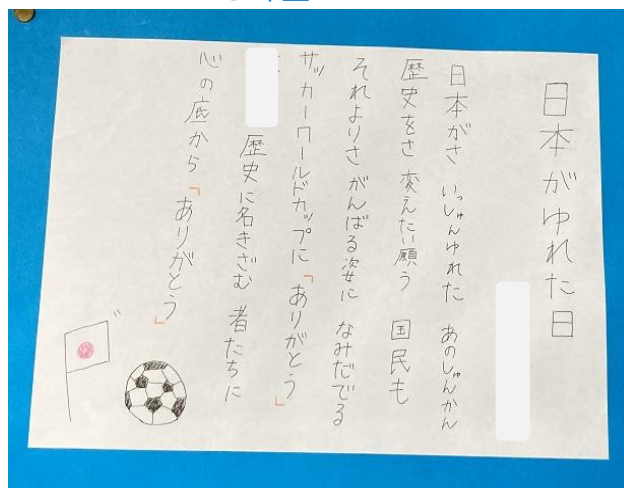 日本がゆれた日
日本がさ いっしゅんゆれた あのしゅんかん
歴史をさ 変えたい願う 国民も
それよりさ がんばる姿に なみだでる
サッカーワールドカップに「ありがとう」
歴史に名きざむ 者たちに
心の底から「ありがとう」